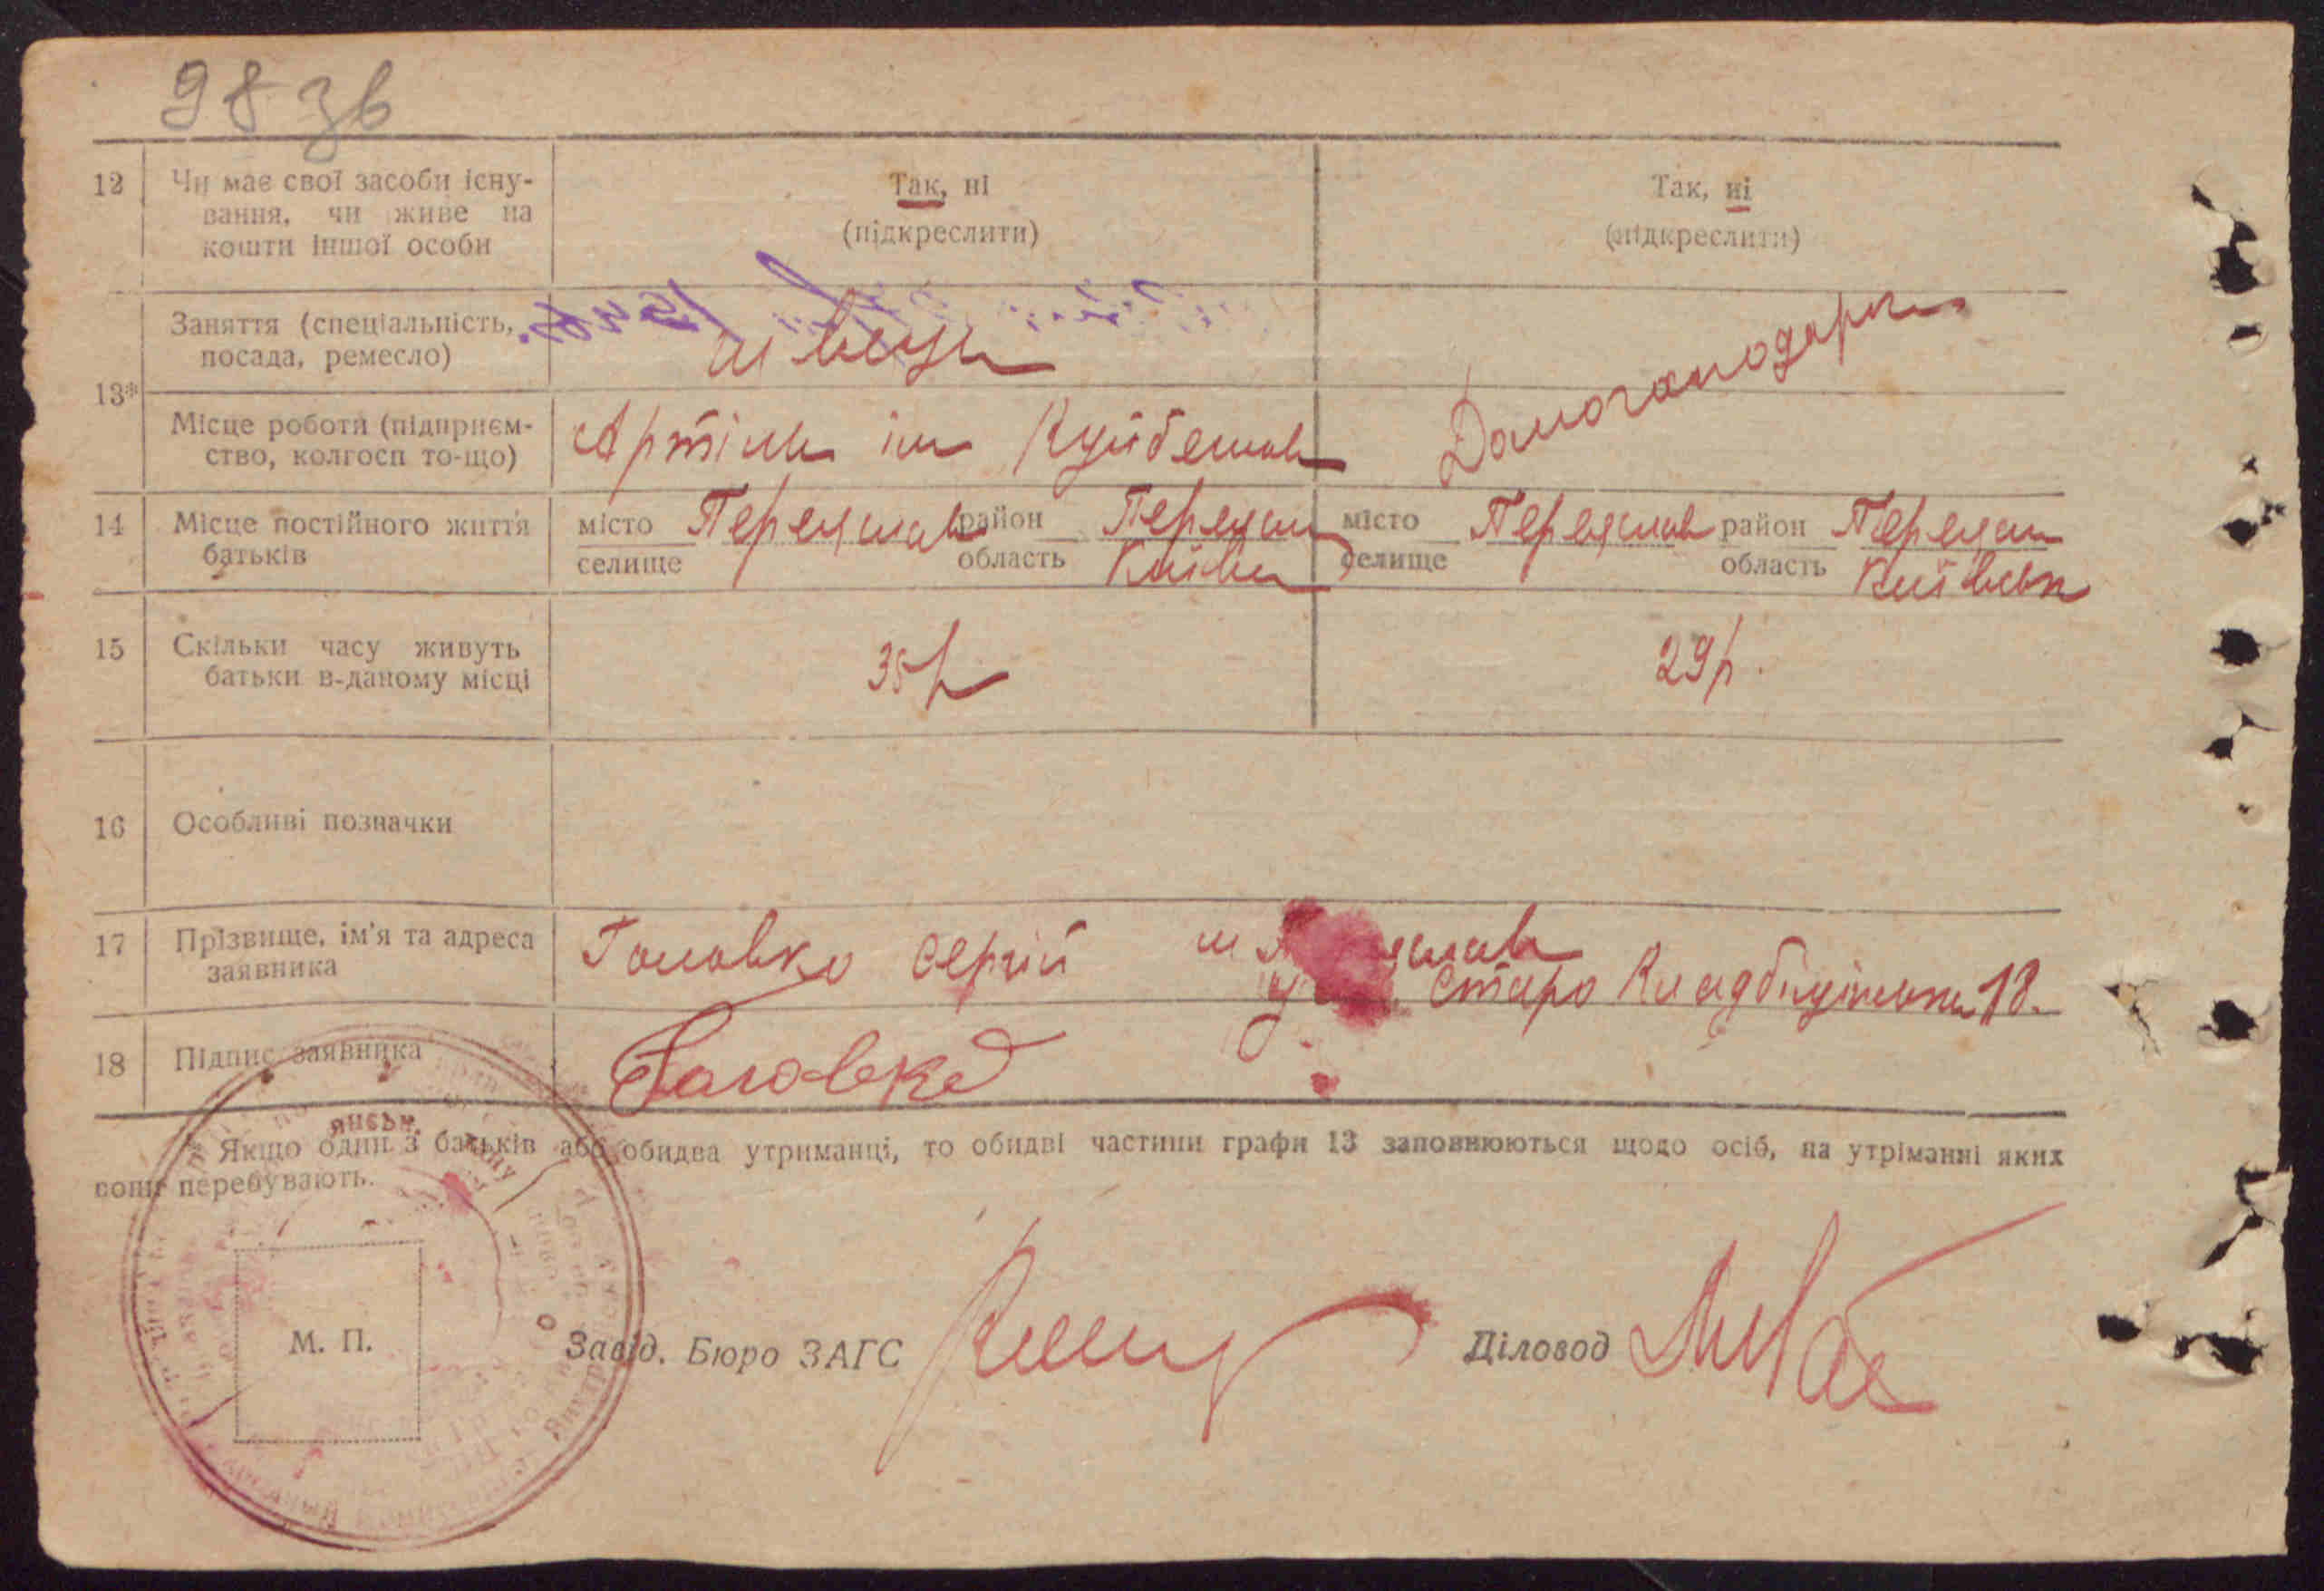 98 зв
12 Чи має свої засоби існу-
вання, чи живе на
кошти іншої особи
Так, ні
(підкреслити)
Так, ні
(підкреслити)
13*
Заняття (спеціальність,
посада, ремесло)
швець
Домогосподарка
Місце роботи (підприєм-
ство, колгосп то-що)
Артіль ім
14 Місце постійного життя
батьків
місто Переяслав район Переясл
селище область Київськ
місто Переяслав район Переясл
селище область Київськ
15 Скільки часу живуть
батьки в-даному місці
35 р
29 р.
16 Особливі позначки
17 Прізвище, ім'я та адреса
заявника
Головко Сергій м
Старо Кладбищінська 18.
18 Підпис заявника
Головко
* Якщо один з батьків або обидва утриманці, то обидві частини графи 13 заповнюються щодо осіб, на утріманні яких
вони перебувають.
М. П.
Завід. Бюро ЗАГС
Діловод